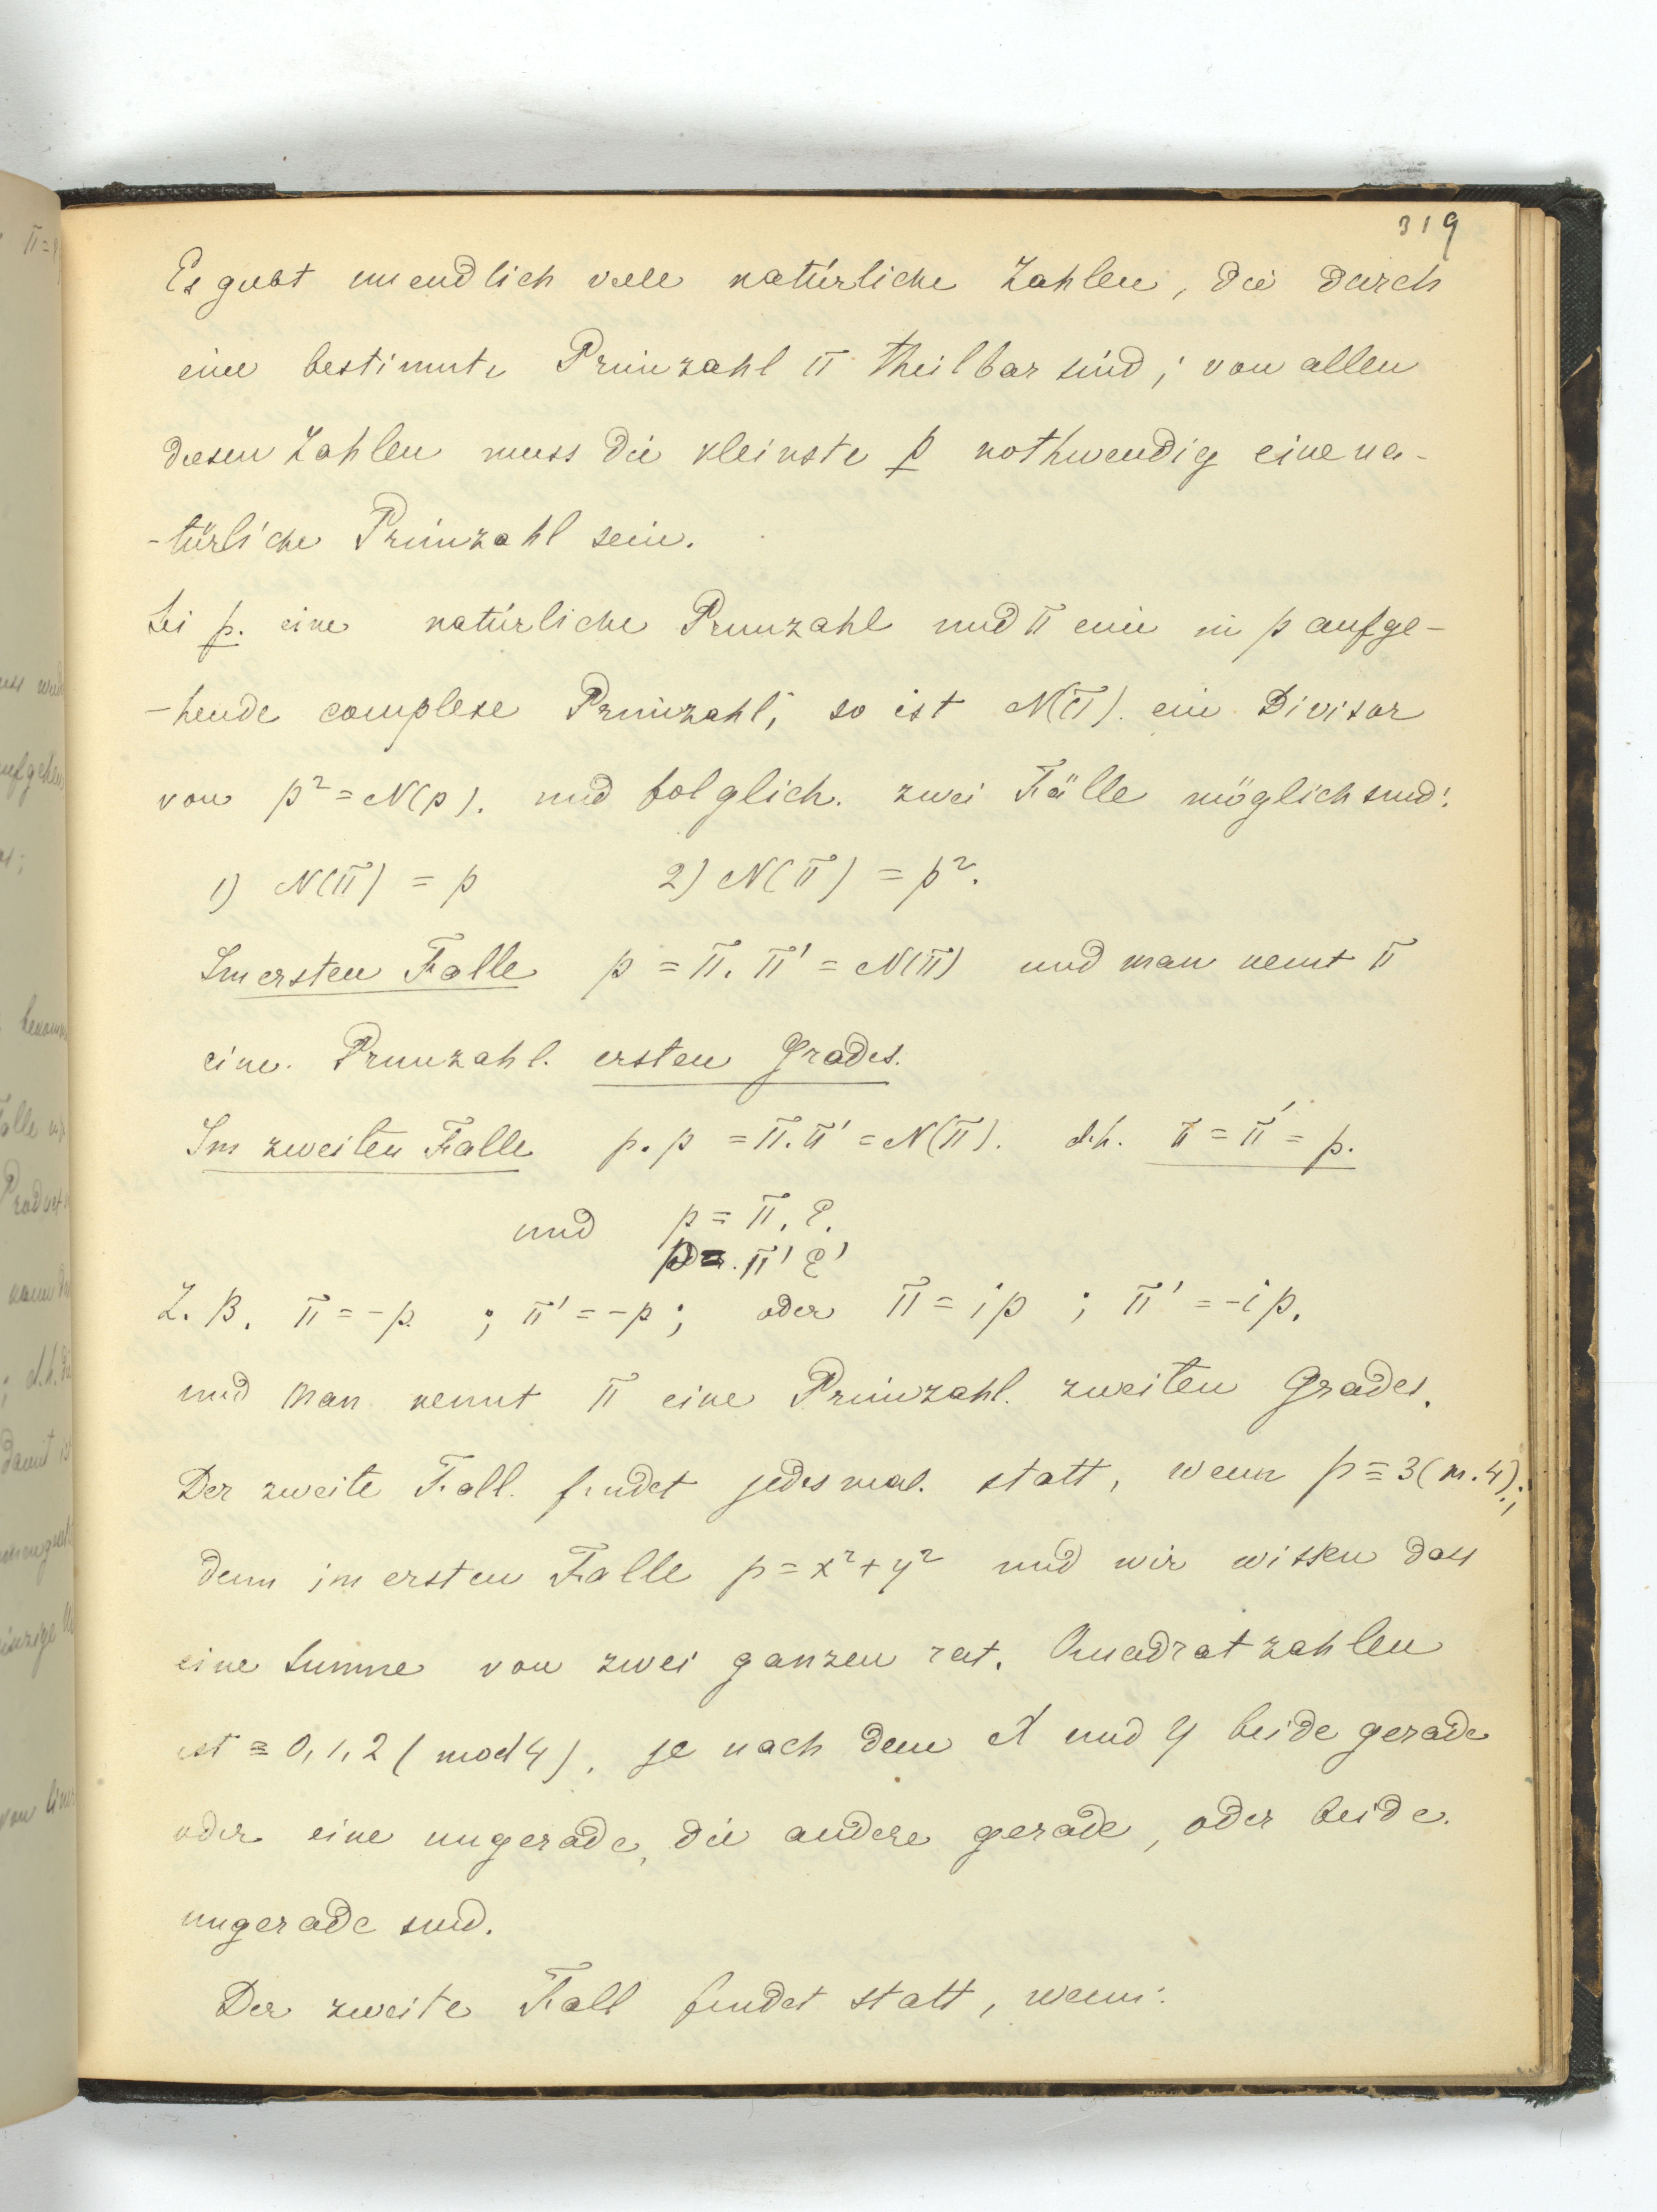 319
Es giebt unendlich viele natürliche Zahlen, die durch
eine bestimmte Primzahl π theilbar sind; von allen
diesen Zahlen muss die kleinste p nothwendig eine na-
-türliche Primzahl sein.
Sei p. eine natürliche Primzahl und π eine in p aufge-
-hende complexe Primzahl; so ist N(π). ein Divisor
von p² = N(p). und folglich. zwei Fälle möglich sind:
1) N(π) = p 2) N(π) = p².
Im ersten Falle p = π. π' = N(π) und man nennt π
eine. Primzahl. ersten Grades.
Im zweiten Falle p. p = π. π' = N(π). d.h. π = π' = p.
und p = π. ε.
p = π' ε'
Z. B. π = -p ; π' = -p ; oder π = ip ; π' = -ip.
und man nennt π eine Primzahl. zweiten Grades.
Der zweite Fall. findet jedesmal. statt, wenn p ≡ 3 (m. 4);
denn im ersten Falle p = x² + y² und wir wissen dass
eine Summe von zwei ganzen rat. Quadratzahlen
ist ≡ 0, 1, 2 (mod 4), je nach dem X und Y beide gerade
oder eine ungerade, die andere gerade, oder beide.
ungerade sind.
Der zweite Fall findet statt, wenn: